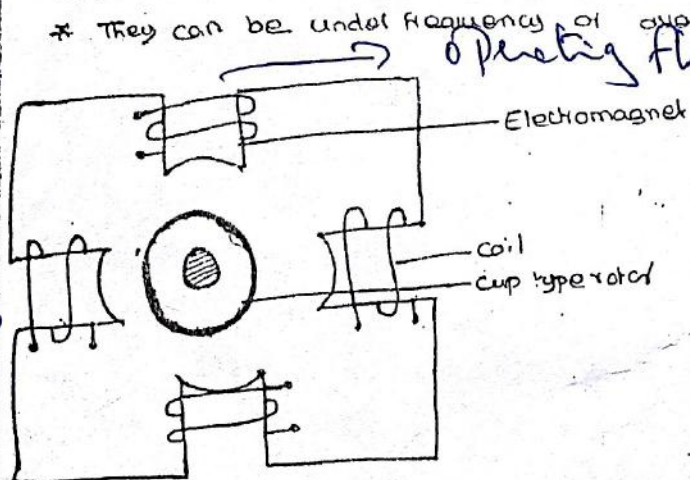 * They can be under frequency or
operating
Electromagnet
coil
cup type rotor